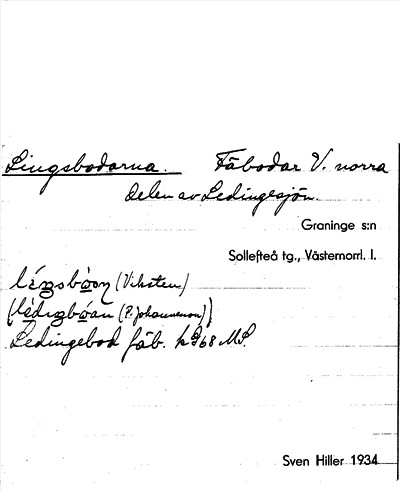 Lingsbodarna. Fäbodar V. norra
delen av Ledingesjön.
Graninge s:n
Sollefteå tg., Västernorrl. l.
(Viksten)
(P. Johannenson)
Ledingebod fäb. MS.
Sven Hiller 1934